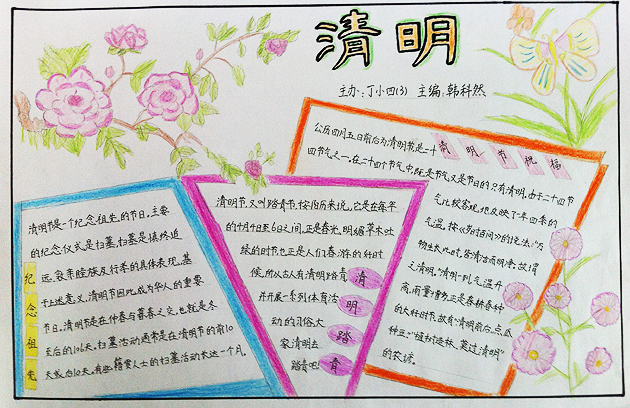 清明
主办:丁小四(3) 主编:韩科然
清明节是一个纪念祖先的节日,主要
的纪念仪式是扫墓,扫墓是慎终追
远、敦亲睦族及行孝的具体表现,基
于上述意义,清明节因此成为华人的重要
节日,清明节是在仲春与暮春之交,也就是冬
至后的106天,扫墓活动通常是在清明节的前10
天或后10天,有些籍贯人士的扫墓活动长达一个月.
纪
念
祖
先
清明节又叫踏青节,按阳历来说,它是在每年
的4月4日至6日之间,正是春光明媚草木吐
绿的时节也正是人们春游的好时
候,所以古人有清明踏青
并开展一系列体育活
动的习俗,大
家清明去
踏青吧!
清
明
踏
青
清明节祝福
公历四月五日前后为清明节是二十
四节气之一,在二十四个节气中,既是节气又是节日的只有清明,由于二十四节
气比较客观地反映了一年四季的
气温,按《岁时百问》的说法:"万
物生长此时,皆清洁而明净,故谓
之清明."清明一到,气温升
高,雨量增多,正是春耕春种
的大好时节.故有"清明前后,点瓜
种豆.""植树造林,莫过清明"
的农谚.